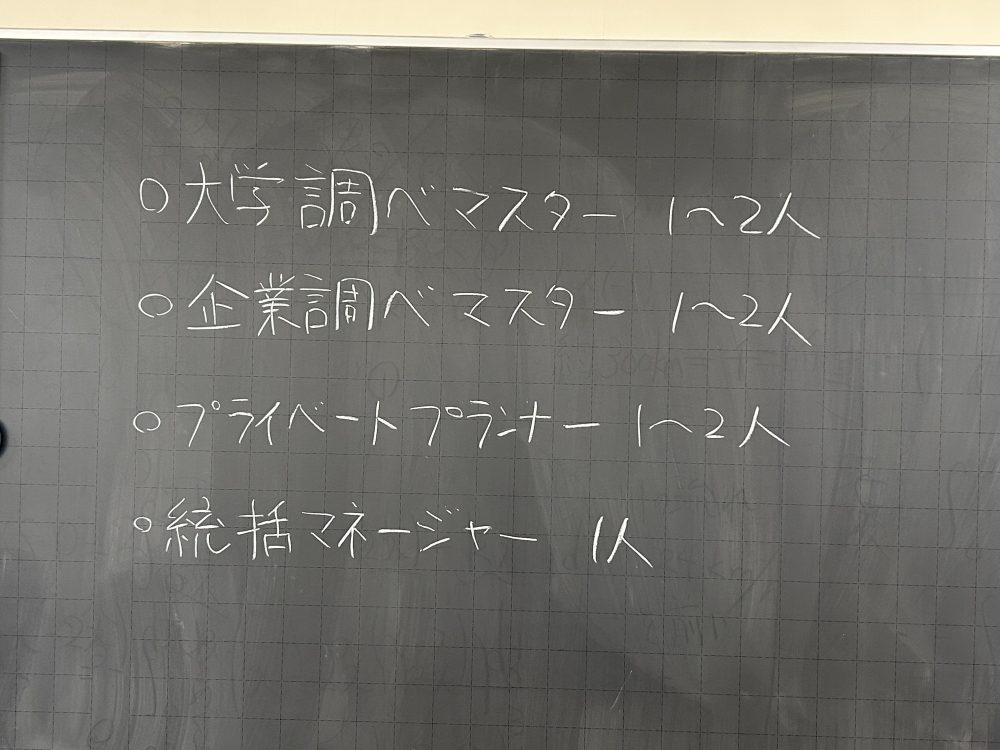 ○大学調べマスター 1〜2人
○企業調べマスター 1〜2人
○プライベートプランナー 1〜2人
○統括マネージャー 1人